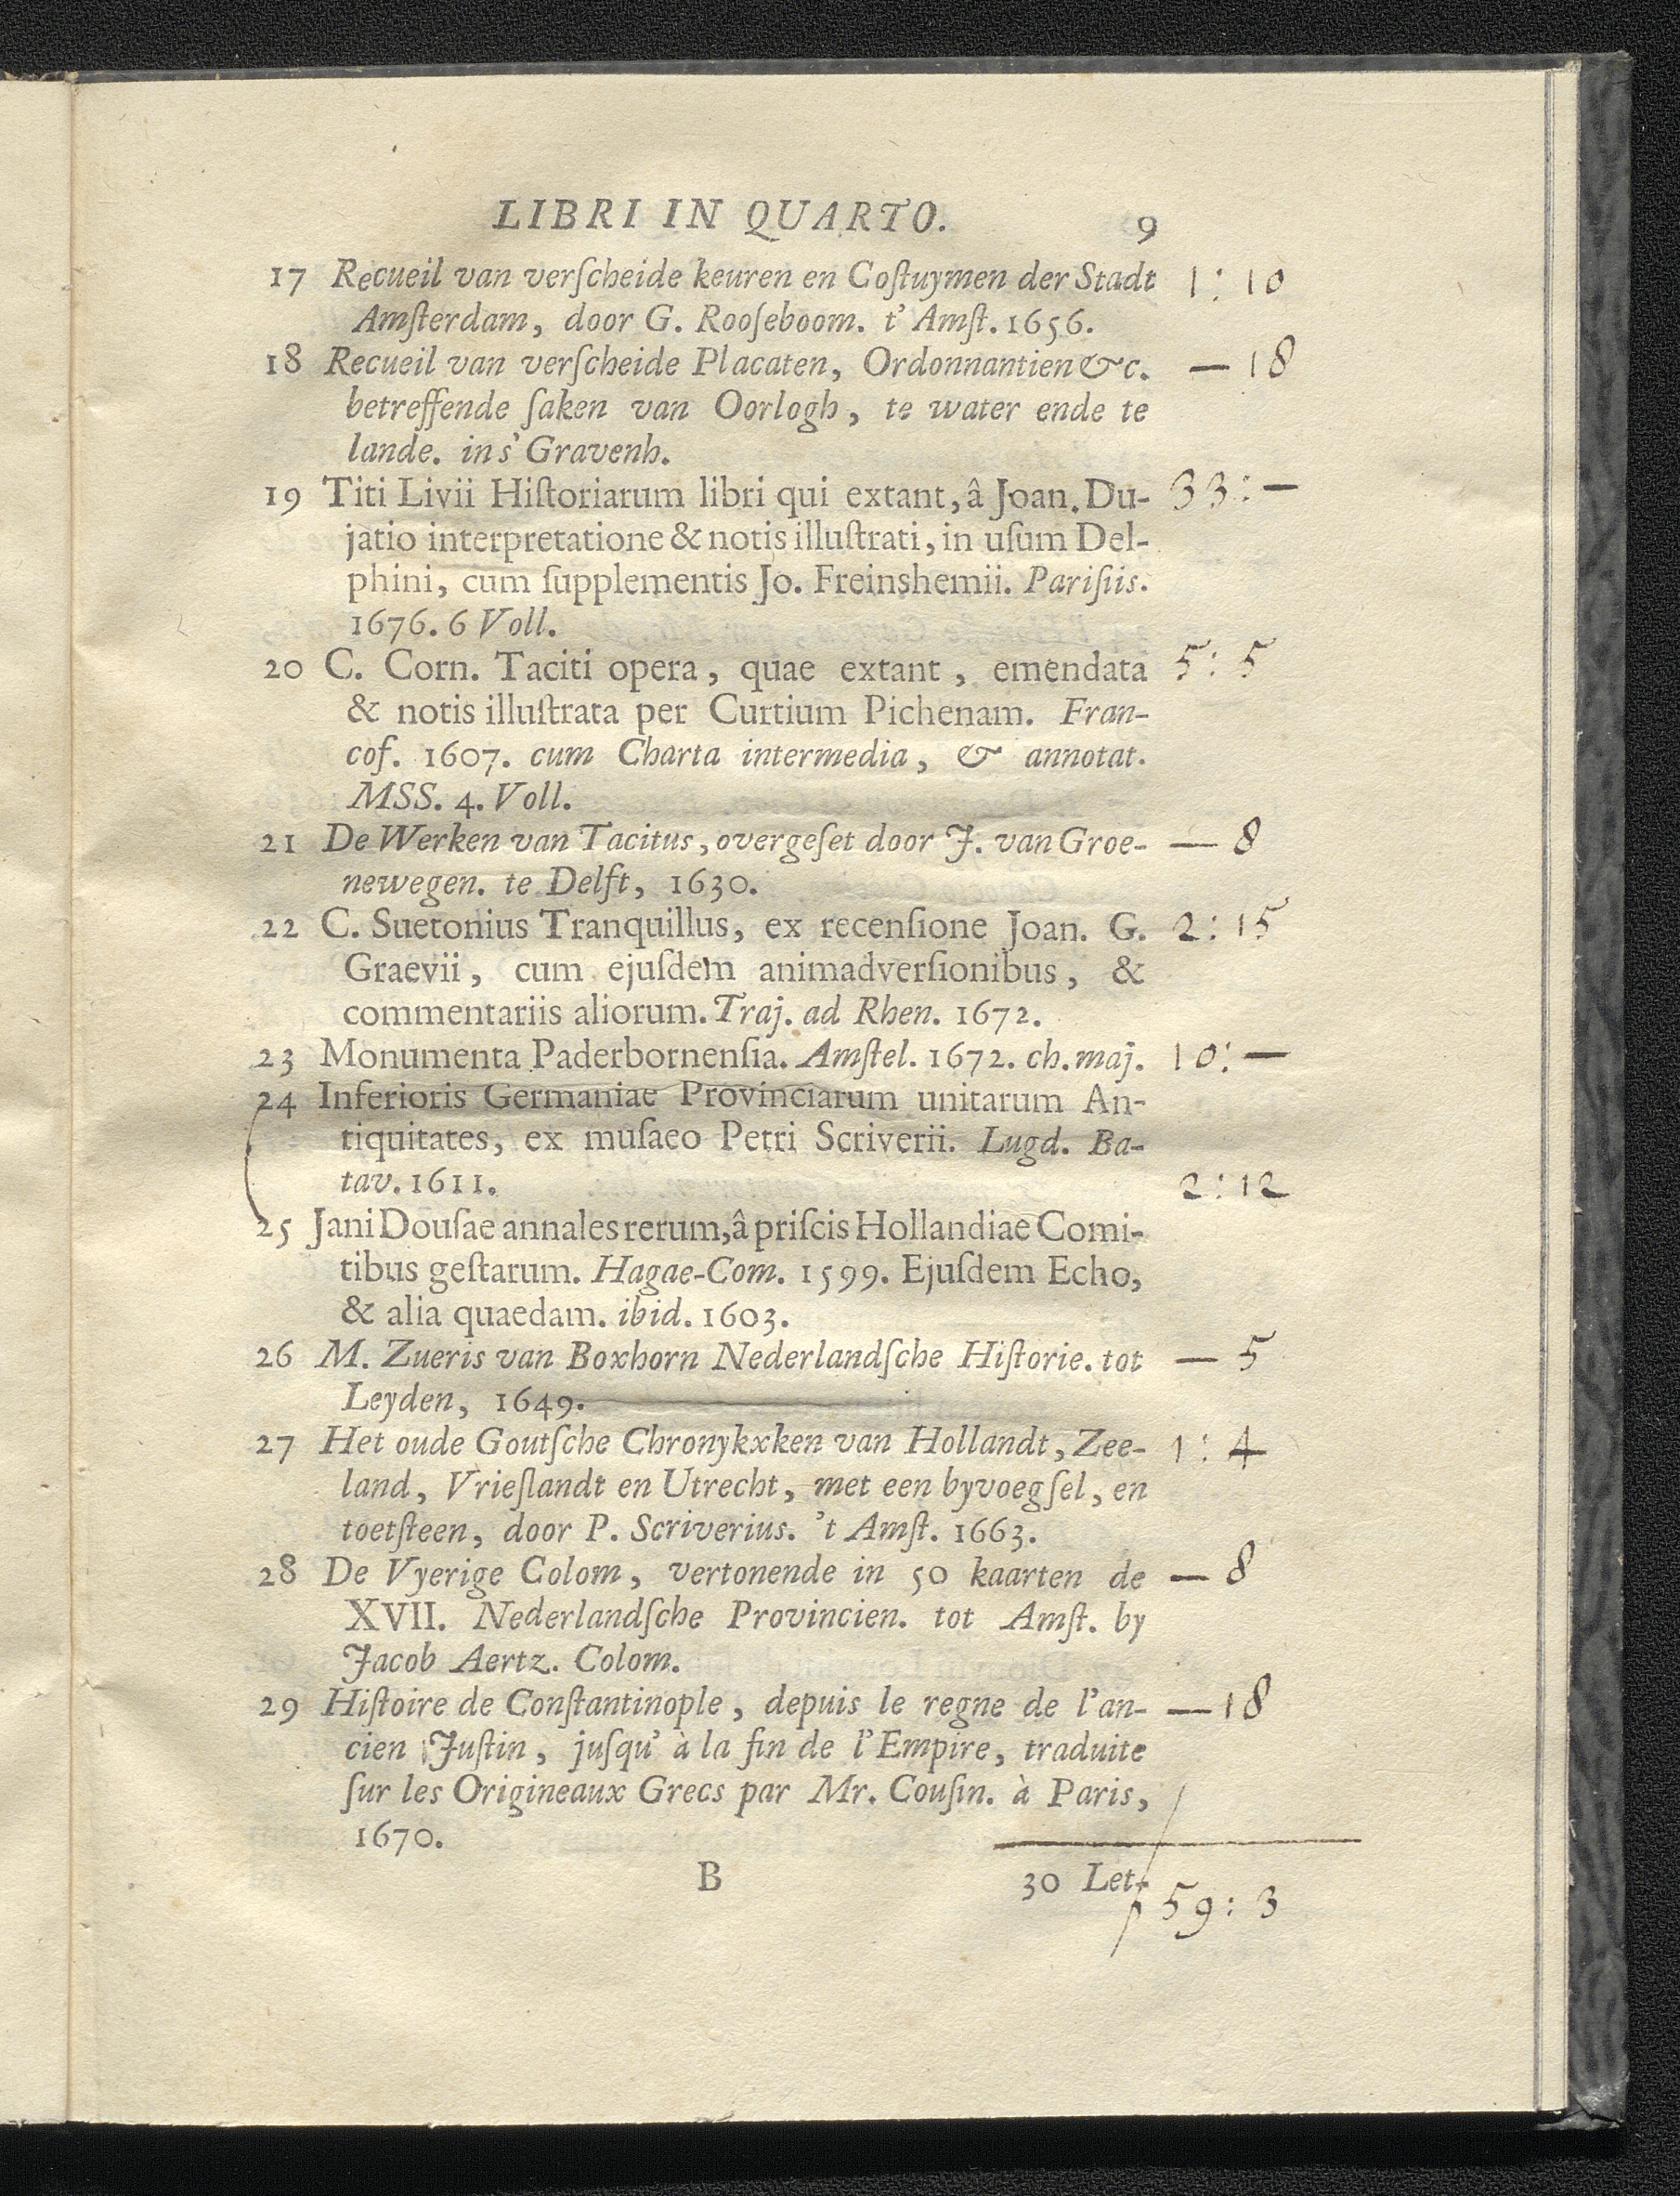 LIBRI IN QUARTO. 9
17 Recueil van verſcheide keuren en Coſtuymen der Stadt 1 : 10
Amſterdam, door G. Rooſeboom. t' Amſt. 1656.
18 Recueil van verſcheide Placaten, Ordonnantien &c. — 18
betreffende ſaken van Oorlogh, te water ende te
lande. in s' Gravenh.
19 Titi Livii Hiſtoriarum libri qui extant, â Joan. Du- 33 : —
jatio interpretatione & notis illuſtrati, in uſum Del-
phini, cum ſupplementis Jo. Freinshemii. Pariſiis.
1676. 6 Voll.
20 C. Corn. Taciti opera, quae extant, emendata 5 : 5
& notis illuſtrata per Curtium Pichenam. Fran-
cof. 1607. cum Charta intermedia, & annotat.
MSS. 4. Voll.
21 De Werken van Tacitus, overgeſet door J. van Groe- — 8
newegen. te Delft, 1630.
22 C. Suetonius Tranquillus, ex recenſione Joan. G. 2 : 15
Graevii, cum ejuſdem animadverſionibus, &
commentariis aliorum. Traj. ad Rhen. 1672.
23 Monumenta Paderbornenſia. Amſtel. 1672. ch. maj. 10 : —
24 Inferioris Germaniae Provinciarum unitarum An-
tiquitates, ex muſaeo Petri Scriverii. Lugd. Ba-
tav. 1611. 2 : 12
25 Jani Douſae annales rerum, â priſcis Hollandiae Comi-
tibus geſtarum. Hagae-Com. 1599. Ejuſdem Echo,
& alia quaedam. ibid. 1603.
26 M. Zueris van Boxhorn Nederlandſche Hiſtorie. tot — 5
Leyden, 1649.
27 Het oude Goutſche Chronykxken van Hollandt, Zee- 1 : 4
land, Vrieſlandt en Utrecht, met een byvoegſel, en
toetſteen, door P. Scriverius. 't Amſt. 1663.
28 De Vyerige Colom, vertonende in 50 kaarten de — 8
XVII. Nederlandſche Provincien. tot Amſt. by
Jacob Aertz. Colom.
29 Hiſtoire de Conſtantinople, depuis le regne de l'an- — 18
cien Juſtin, juſqu' à la fin de l'Empire, traduite
ſur les Origineaux Grecs par Mr. Couſin. à Paris,
1670.
B 30 Let-
ƒ 59 : 3